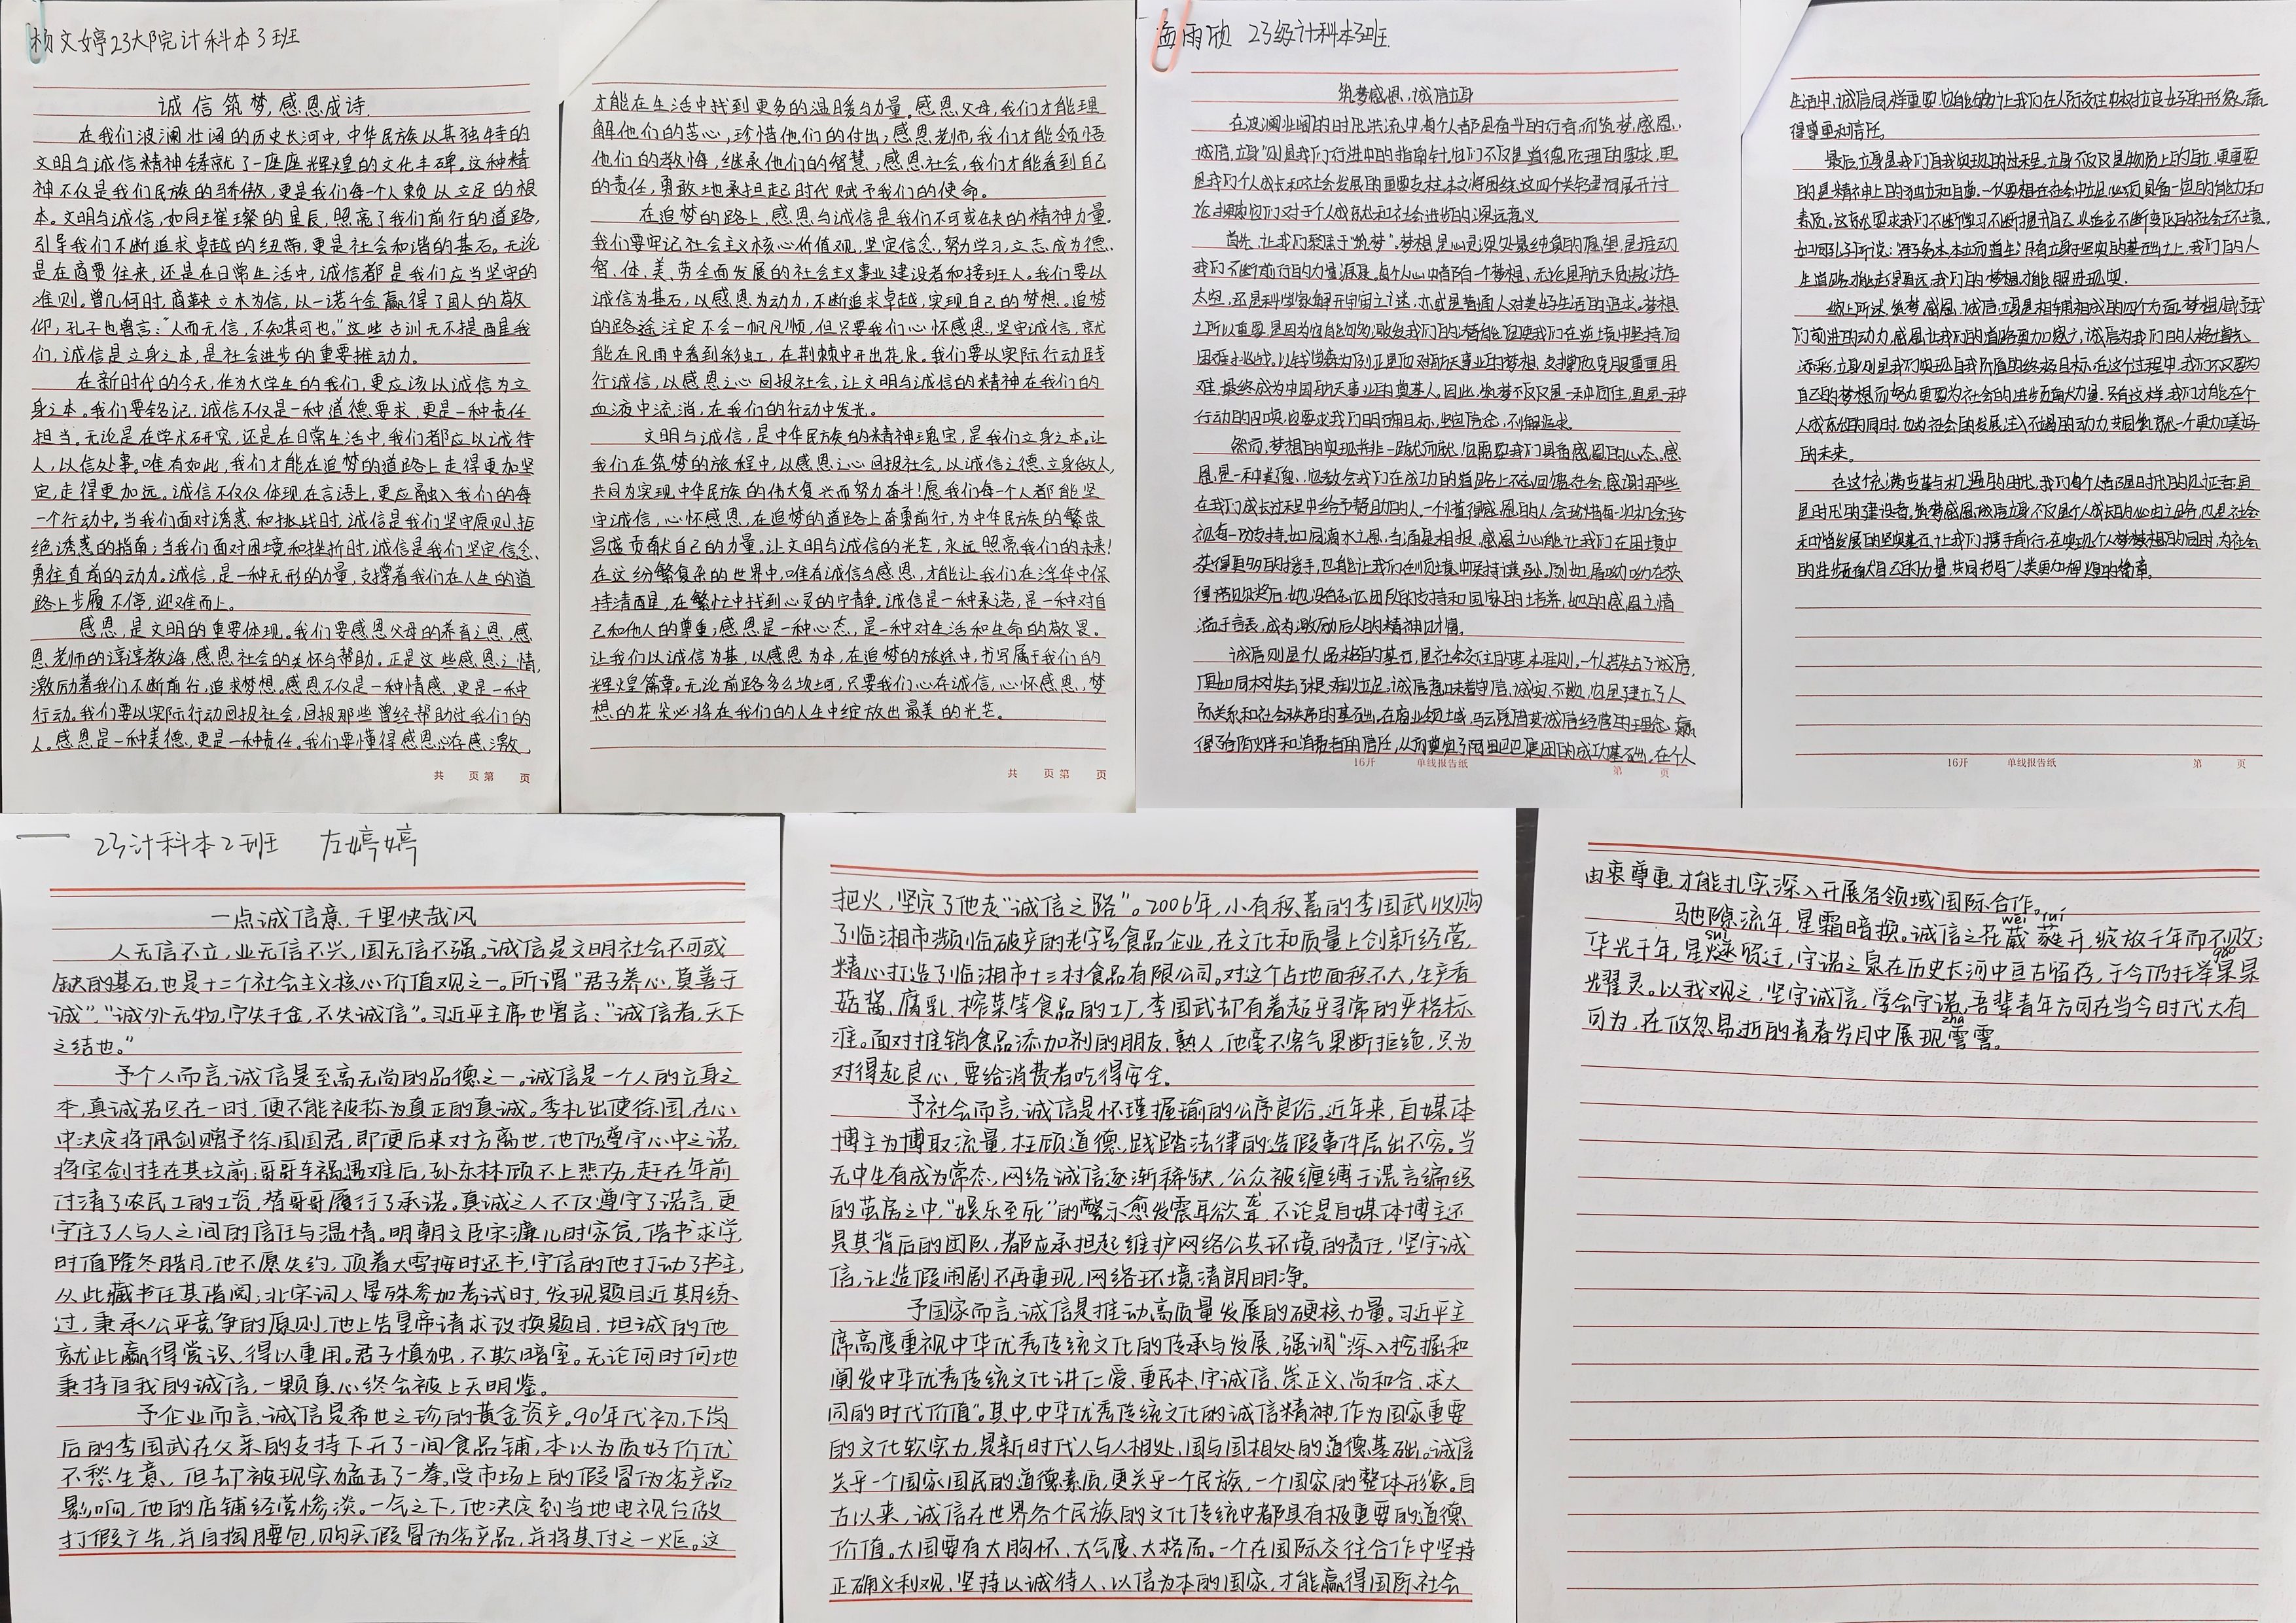 杨文婷23大院计科本3班
诚信筑梦,感恩成诗.
在我们波澜壮阔的历史长河中,中华民族以其独特的
文明与诚信精神铸就了一座座辉煌的文化丰碑。这种精
神不仅是我们民族的骄傲,更是我们每一个人赖以立足的根
本。文明与诚信,如同璀璨的星辰,照亮了我们前行的道路,
引导我们不断追求卓越的纽带,更是社会和谐的基石。无论
是在商贾往来,还是在日常生活中,诚信都是我们应当坚守的
准则。曾几何时,商鞅立木为信,以一诺千金赢得了国人的敬
仰;孔子也曾言:“人而无信,不知其可也。”这些古训无不提醒我
们,诚信是立身之本,是社会进步的重要推动力。
在新时代的今天,作为大学生的我们,更应该以诚信为立
身之本。我们要铭记,诚信不仅是一种道德要求,更是一种责任
担当。无论是在学术研究,还是在日常生活中,我们都应以诚待
人,以信处事。唯有如此,我们才能在追梦的道路上走得更加坚
定,走得更加远。诚信不仅仅体现在言语上,更应融入我们的每
一个行动中。当我们面对诱惑和挑战时,诚信是我们坚守原则、拒
绝诱惑的指南;当我们面对困境和挫折时,诚信是我们坚定信念、
勇往直前的动力。诚信,是一种无形的力量,支撑着我们在人生的道
路上步履不停,迎难而上。
感恩,是文明的重要体现。我们要感恩父母的养育之恩,感
恩老师的谆谆教诲,感恩社会的关怀与帮助。正是这些感恩之情,
激励着我们不断前行,追求梦想。感恩不仅是一种情感,更是一种
行动。我们要以实际行动回报社会,回报那些曾经帮助过我们的
人。感恩是一种美德,更是一种责任。我们要懂得感恩,心存感激,
共 页第 页
才能在生活中找到更多的温暖与力量。感恩父母,我们才能理
解他们的苦心,珍惜他们的付出;感恩老师,我们才能领悟
他们的教悔,继承他们的智慧;感恩社会,我们才能看到自己
的责任,勇敢地承担起时代赋予我们的使命。
在追梦的路上,感恩与诚信是我们不可或缺的精神力量。
我们要牢记社会主义核心价值观,坚定信念,努力学习,立志成为德、
智、体、美、劳全面发展的社会主义事业建设者和接班人。我们要以
诚信为基石,以感恩为动力,不断追求卓越,实现自己的梦想。追梦
的路途注定不会一帆风顺,但只要我们心怀感恩,坚守诚信,就
能在风雨中看到彩虹,在荆棘中开出花朵。我们要以实际行动践
行诚信,以感恩之心回报社会,让文明与诚信的精神在我们的
血液中流淌,在我们的行动中发光。
文明与诚信,是中华民族的精神瑰宝,是我们立身之本。让
我们在筑梦的旅程中,以感恩之心回报社会,以诚信之德立身做人,
共同为实现中华民族的伟大复兴而努力奋斗!愿我们每一个人都能坚
守诚信,心怀感恩,在追梦的道路上奋勇前行,为中华民族的繁荣
昌盛贡献自己的力量。让文明与诚信的光芒,永远照亮我们的未来!
在这纷繁复杂的世界中,唯有诚信与感恩,才能让我们在浮华中保
持清醒,在繁忙中找到心灵的宁静。诚信是一种承诺,是一种对自
己和他人的尊重;感恩是一种心态,是一种对生活和生命的敬畏。
让我们以诚信为基,以感恩为本,在追梦的旅途中,书写属于我们的
辉煌篇章。无论前路多么坎坷,只要我们心存诚信,心怀感恩,梦
想的花朵必将在我们的人生中绽放出最美的光芒。
共 页第 页
孟雨欣 23级计科本3班
筑梦感恩、诚信立身
在波澜壮阔的时代洪流中,每个人都是奋斗的行者,而筑梦、感恩、
诚信、立身"则是我们行进中的指南针,它们不仅是道德伦理的要求,更
是我们个人成长和社会发展的重要支柱.本文将围绕这四个关键词展开讨
论,探索它们对于个人成长和社会进步的深远意义.
首先,让我们聚焦于"筑梦".梦想是心灵深处最纯真的愿望,是推动
我们不断前行的力量源泉.每个人心中都有一个梦想,无论是航天员遨游
太空,还是科学家解开宇宙之谜,亦或是普通人对美好生活的追求.梦想
之所以重要,是因为它能够激发我们的潜能,促使我们在逆境中坚持,向
困难挑战.以钱学森为例,正是他对航天事业的梦想,支撑他克服重重困
难,最终成为中国航天事业的奠基人。因此,筑梦不仅仅是一种向往,更是一种
行动的召唤,它要求我们明确目标,坚定信念,不懈追求.
然而,梦想的实现并非一蹴而就,它需要我们具备感恩的心态.感
恩,是一种美德,它教会我们在成功的道路上不忘回馈社会,感谢那些
在我们成长过程中给予帮助的人.一个懂得感恩的人,会珍惜每一次机会,珍
视每一份支持,如同滴水之恩,当涌泉相报.感恩之心能让我们在困境中
获得更多的援手,也能让我们在顺境中保持谦逊.例如,屠呦呦在获
得诺贝尔奖后,她没有忘记团队的支持和国家的培养,她的感恩之情
溢于言表,成为激励后人的精神财富.
诚信则是个人品格的基石,是社会交往的基本准则.一个人若失去了诚信,
便如同树失去了根,难以立足.诚信意味着守信、诚实、不欺,它是建立了人
际关系和社会秩序的基础.在商业领域,马云凭借其诚信经营的理念,赢
得了合作伙伴和消费者的信任,从而奠定了阿里巴巴集团的成功基础.在个人
16开 单线报告纸
第 页
生活中,诚信同样重要,它能够让我们在人际交往中树立良好的形象,赢
得尊重和信任.
最后,立身是我们自我实现的过程.立身不仅仅是物质上的自立,更重要
的是精神上的独立和自尊.一个人要想在社会中立足,必须具备一定的能力和
素质。这就要求我们不断学习,不断提升自己,以适应不断变化的社会环境.
如同孔子所说:"君子务本,本立而道生".只有立身于坚实的基础之上,我们的人
生道路才能走得更远,我们的梦想才能照进现实.
综上所述,筑梦、感恩、诚信、立身是相辅相成的四个方面.梦想赋予我
们前进的动力,感恩让我们的道路更加宽广,诚信为我们的人格增光
添彩,立身则是我们实现自我价值的终极目标.在这个过程中,我们不仅要为
自己的梦想而努力,更要为社会的进步贡献力量.只有这样,我们才能在个
人成长的同时,也为社会的发展注入不竭的动力,共同筑就一个更加美好
的未来.
在这个充满变革与机遇的时代,我们每个人都是时代的见证者,更
是时代的建设者.筑梦感恩,诚信立身,不仅是个人成长的必由之路,也是社会
和谐发展的坚实基石.让我们携手前行,在实现个人梦想的同时,为社会
的进步贡献自己的力量,共同书写人类更加辉煌的篇章.
16开 单线报告纸 第 页
23计科本2班 左婷婷
一点诚信意,千里快哉风
人无信不立,业无信不兴,国无信不强。诚信是文明社会不可或
缺的基石,也是十二个社会主义核心价值观之一。所谓“君子养心,莫善于
诚”,“诚外无物,宁失千金,不失诚信”。习近平主席也曾言:“诚信者,天下
之结也。”
予个人而言,诚信是至高无尚的品德之一。诚信是一个人的立身之
本,真诚若只在一时,便不能被称为真正的真诚。季札出使徐国,在心
中决定将佩剑赠予徐国国君,即便后来对方离世,他仍遵守心中之诺,
将宝剑挂在其坟前;哥哥车祸遇难后,孙东林顾不上悲伤,赶在年前
付清了农民工的工资,替哥哥履行了承诺。真诚之人不仅遵守了诺言,更
守住了人与人之间的信任与温情。明朝文臣宋濂儿时家贫,借书求学,
时值隆冬腊月,他不愿失约,顶着大雪按时还书,守信的他打动了书主,
从此藏书任其借阅;北宋词人晏殊参加考试时,发现题目近期练
过,秉承公平竞争的原则,他上告皇帝请求改换题目,坦诚的他
就此赢得赏识、得以重用。君子慎独,不欺暗室。无论何时何地
秉持自我的诚信,一颗真心终会被上天明鉴。
予企业而言,诚信是希世之珍的黄金资产。90年代初,下岗
后的李国武在父亲的支持下开了一间食品铺,本以为质好价优
不愁生意,但却被现实猛击了一拳。受市场上的假冒伪劣产品
影响,他的店铺经营惨淡。一气之下,他决定到当地电视台做
打假广告,并自掏腰包,购买假冒伪劣产品,并将其付之一炬。这
把火,坚定了他走“诚信之路”。2006年,小有积蓄的李国武收购
了临湘市濒临破产的老字号食品企业,在文化和质量上创新经营,
精心打造了临湘市十三村食品有限公司。对这个占地面积不大,生产香
菇酱、腐乳、榨菜等食品的工厂,李国武却有着超乎寻常的严格标
准。面对推销食品添加剂的朋友、熟人,他毫不客气果断拒绝,只为
对得起良心,要给消费者吃得安全。
予社会而言,诚信是怀瑾握瑜的公序良俗。近年来,自媒体
博主为博取流量,枉顾道德、践踏法律的造假事件层出不穷。当
无中生有成为常态,网络诚信逐渐稀缺,公众被缠缚于谎言编织
的茧房之中,“娱乐至死”的警示愈发震耳欲聋,不论是自媒体博主还
是其背后的团队,都应承担起维护网络公共环境的责任,坚守诚
信,让造假闹剧不再重现,网络环境清朗明净。
予国家而言,诚信是推动高质量发展的硬核力量。习近平主
席高度重视中华优秀传统文化的传承与发展,强调“深入挖掘和
阐发中华优秀传统文化讲仁爱、重民本、守诚信、崇正义、尚和合、求大
同的时代价值”。其中,中华优秀传统文化的诚信精神,作为国家重要
的文化软实力,是新时代人与人相处、国与国相处的道德基础。诚信
关乎一个国家国民的道德素质,更关乎一个民族,一个国家的整体形象。自
古以来,诚信在世界各个民族的文化传统中都具有极重要的道德
价值。大国要有大胸怀、大气度、大格局。一个在国际交往合作中坚持
正确义利观、坚持以诚待人、以信为本的国家,才能赢得国际社会
由衷尊重,才能扎实深入开展各领域国际合作。
驰隙流年,星霜暗换。诚信之花葳蕤开,绽放千年而不败;
wēi ruí
华光千年,星燧贸迁,守诺之泉在历史长河中亘古留存,于今仍托举杲杲
suì gǎo
光耀灵。以我观之,坚守诚信,学会守诺,吾辈青年方可在当今时代大有
可为,在攸忽易逝的青春岁月中展现霅霅。
zhá